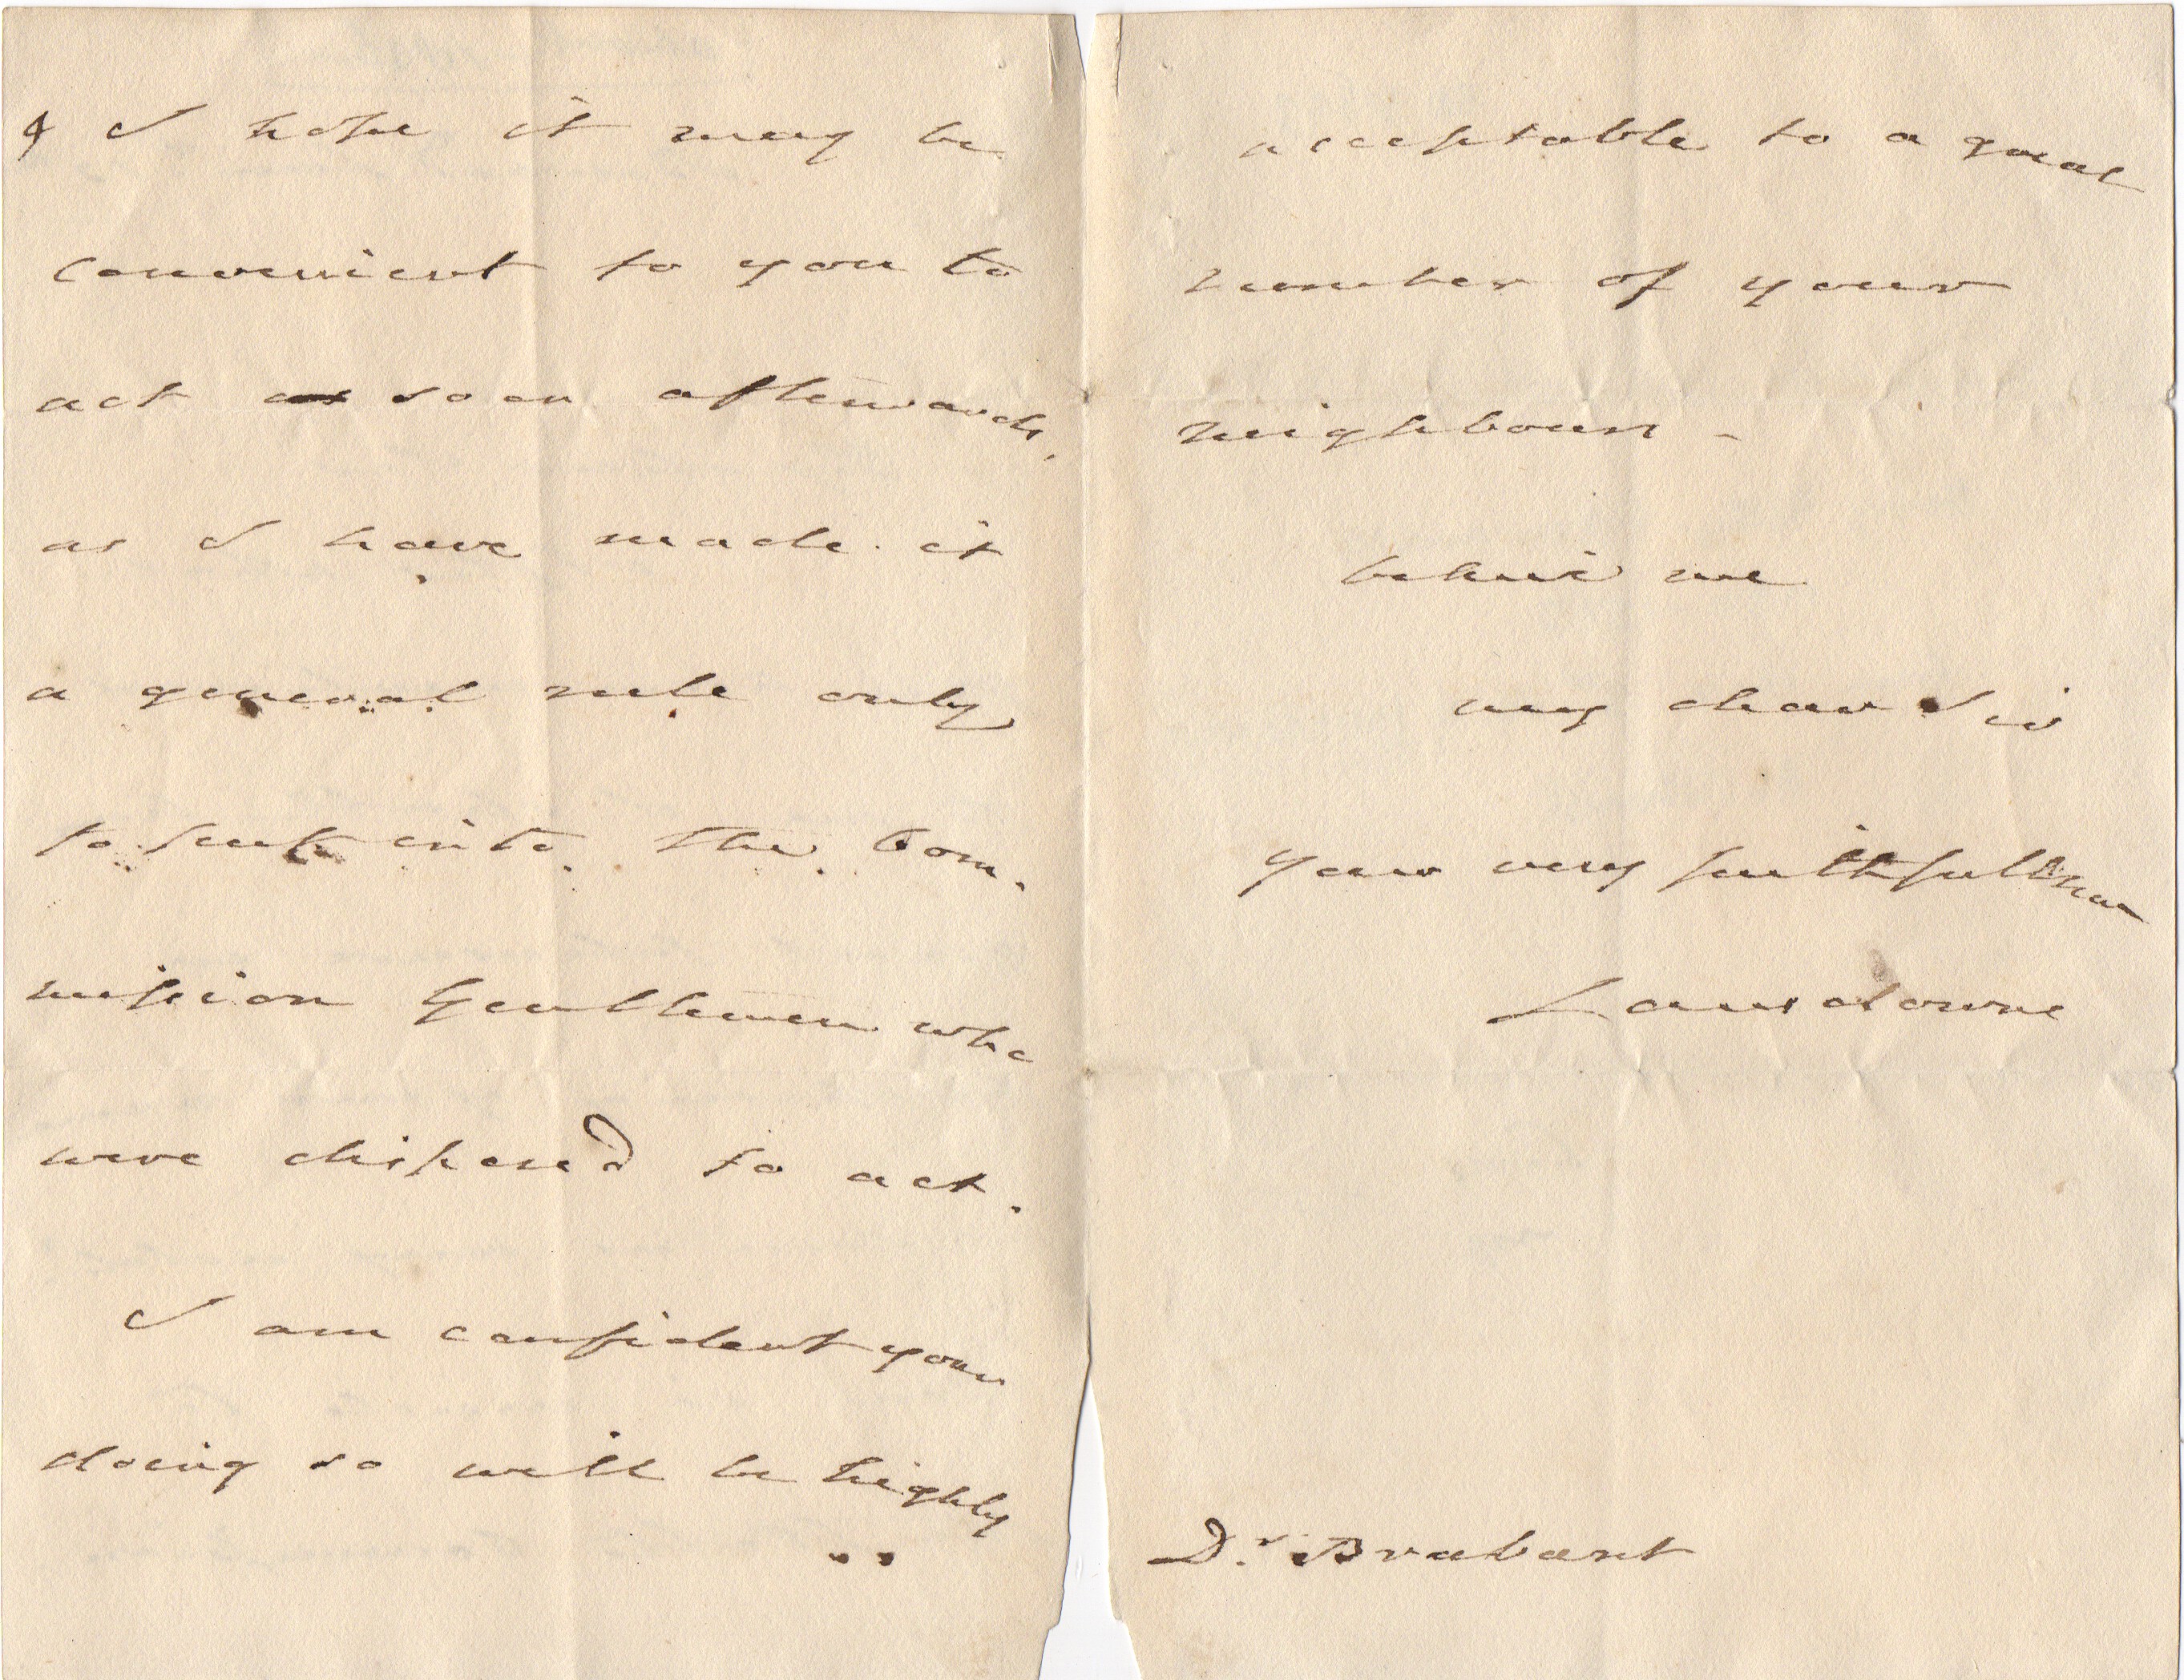 & I hope it may be
convenient to you to
act soon afterwards,
as I have made it
a general rule only
to put into the Com-
mission Gentlemen who
were dispos'd to act.
I am confident your
doing so will be highly
acceptable to a great
number of your
neighbours -
believe me
my dear Sir
your very faithfull
Lansdowne
Dr. Brabant